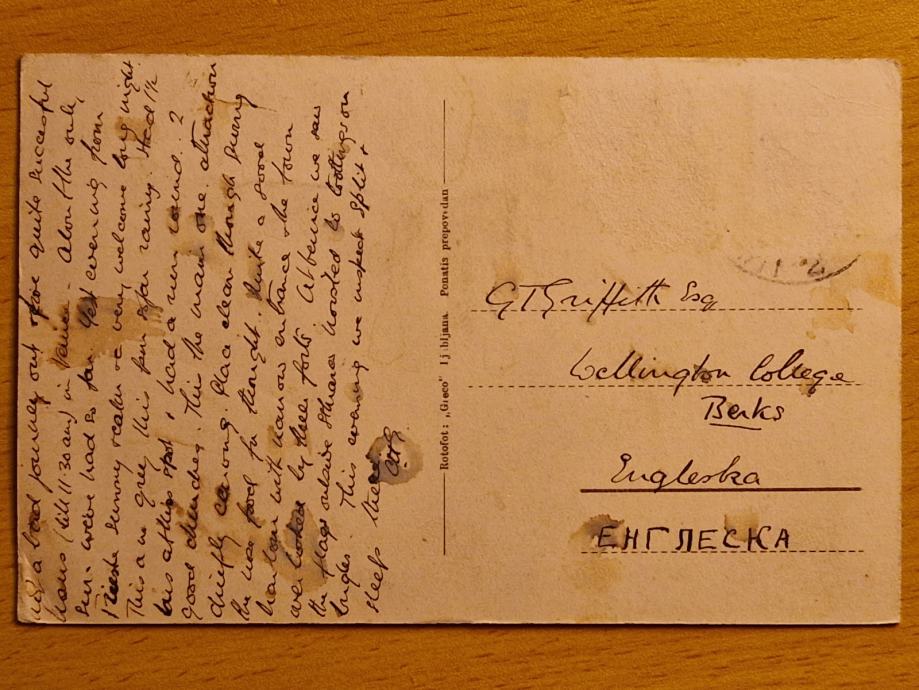 a bad journey out spare quite successful
hours (till 11.30 am) in Venice. About the only
sun weve had so far. Yest evening from
Trieste sunny realm a very welcome long night.
This a m grey this pm after raining. Had 1½
hrs at this spot & had a run round. 2
good churches. This the main one. attraction
chiefly carving. Place clean though swing
the was food for thought. Quite a good
harbour with narrow entrance the town
overlooked by three forts. At Sibenice we saw
the flags outside hoisted to tootlings on
bugles. This evening we inspect Split &
sleep there.
Rotofot: „Gieco" Ljubljana Ponatis prepovedan
G T Griffith Esq
Wellington College
Berks
Engleska
ЕНГЛЕСКА